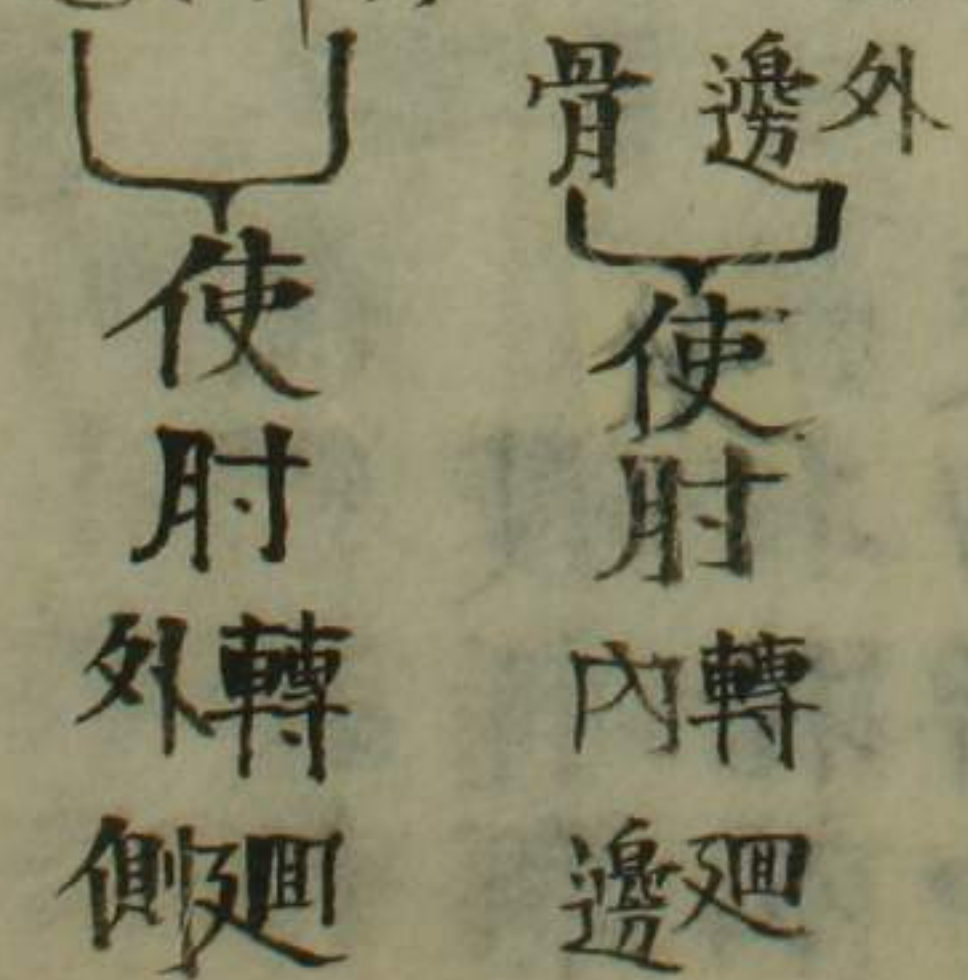 外
邊
骨
使肘
轉廻
內邊
使肘
轉廻
外側